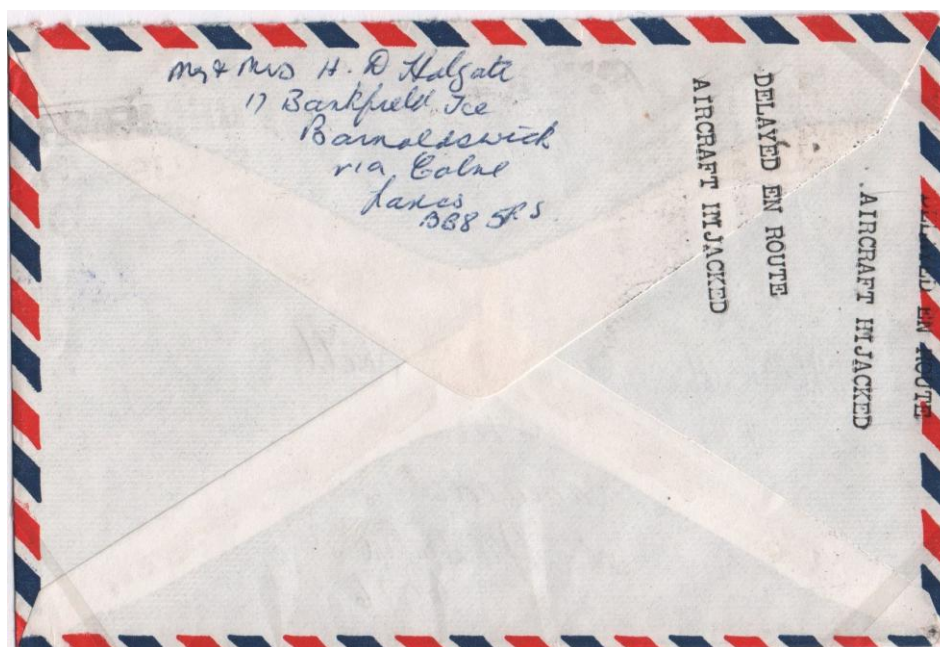 Mr & Mrs H. D Holgate
17 Bankfield Tce
Barnoldswick
via Colne
Lancs
BB8 5PS
DELAYED EN ROUTE
AIRCRAFT IMJACKED
DELAYED EN ROUTE
AIRCRAFT IMJACKED